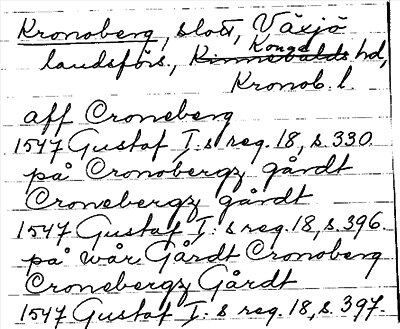 Kronoberg, slott, Växjö
Konga
landsförs., Kinnevalds hd,
Kronob. l.
aff Croneberg
1547 Gustaf I:s reg. 18, s. 330.
på Cronobergz gårdt
Cronebergz gårdt
1547 Gustaf I:s reg. 18, s. 396.
på wår Gårdt Cronoberg
Cronebergz Gårdt
1547 Gustaf I:s reg. 18, s. 397.